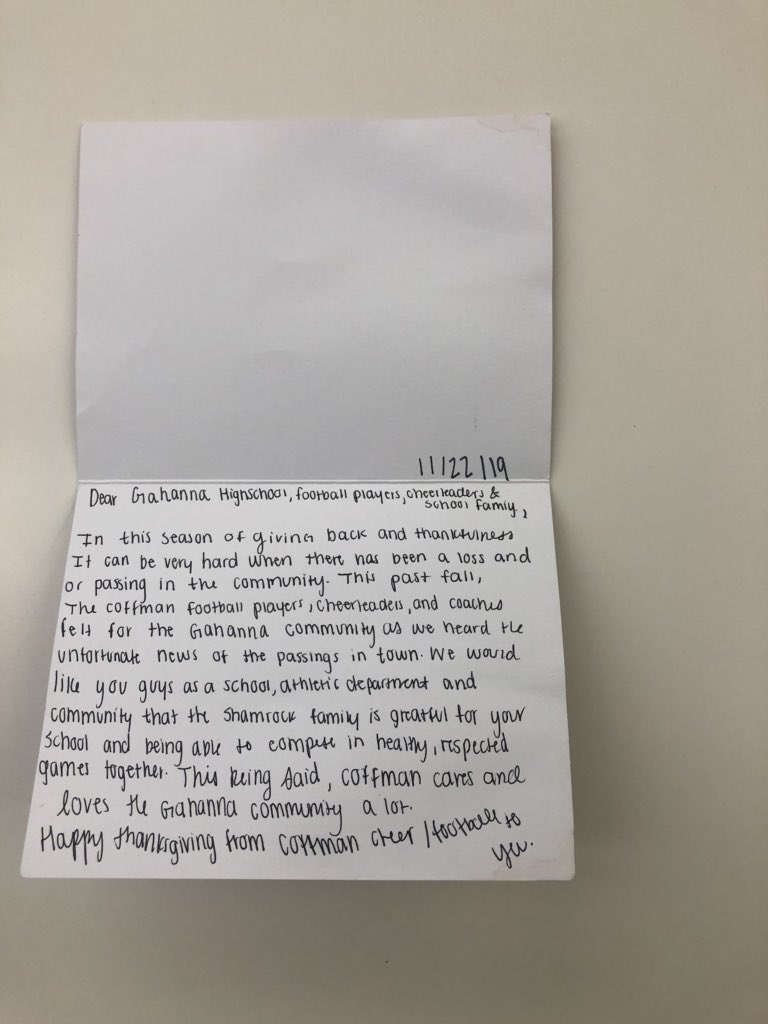 11/22/19
Dear Gahanna Highschool, football players, cheerleaders &
school family,
In this season of giving back and thankfulness
It can be very hard when there has been a loss and
or passing in the community. This past fall,
The coffman football players, cheerleaders, and coaches
felt for the Gahanna community as we heard the
unfortunate news of the passings in town. We would
like you guys as a school, athletic department and
community that the shamrock family is greatful for your
school and being able to compete in healthy, respected
games together. This being said, coffman cares and
loves the Gahanna community a lot.
Happy thanksgiving from coffman cheer / football to
you.